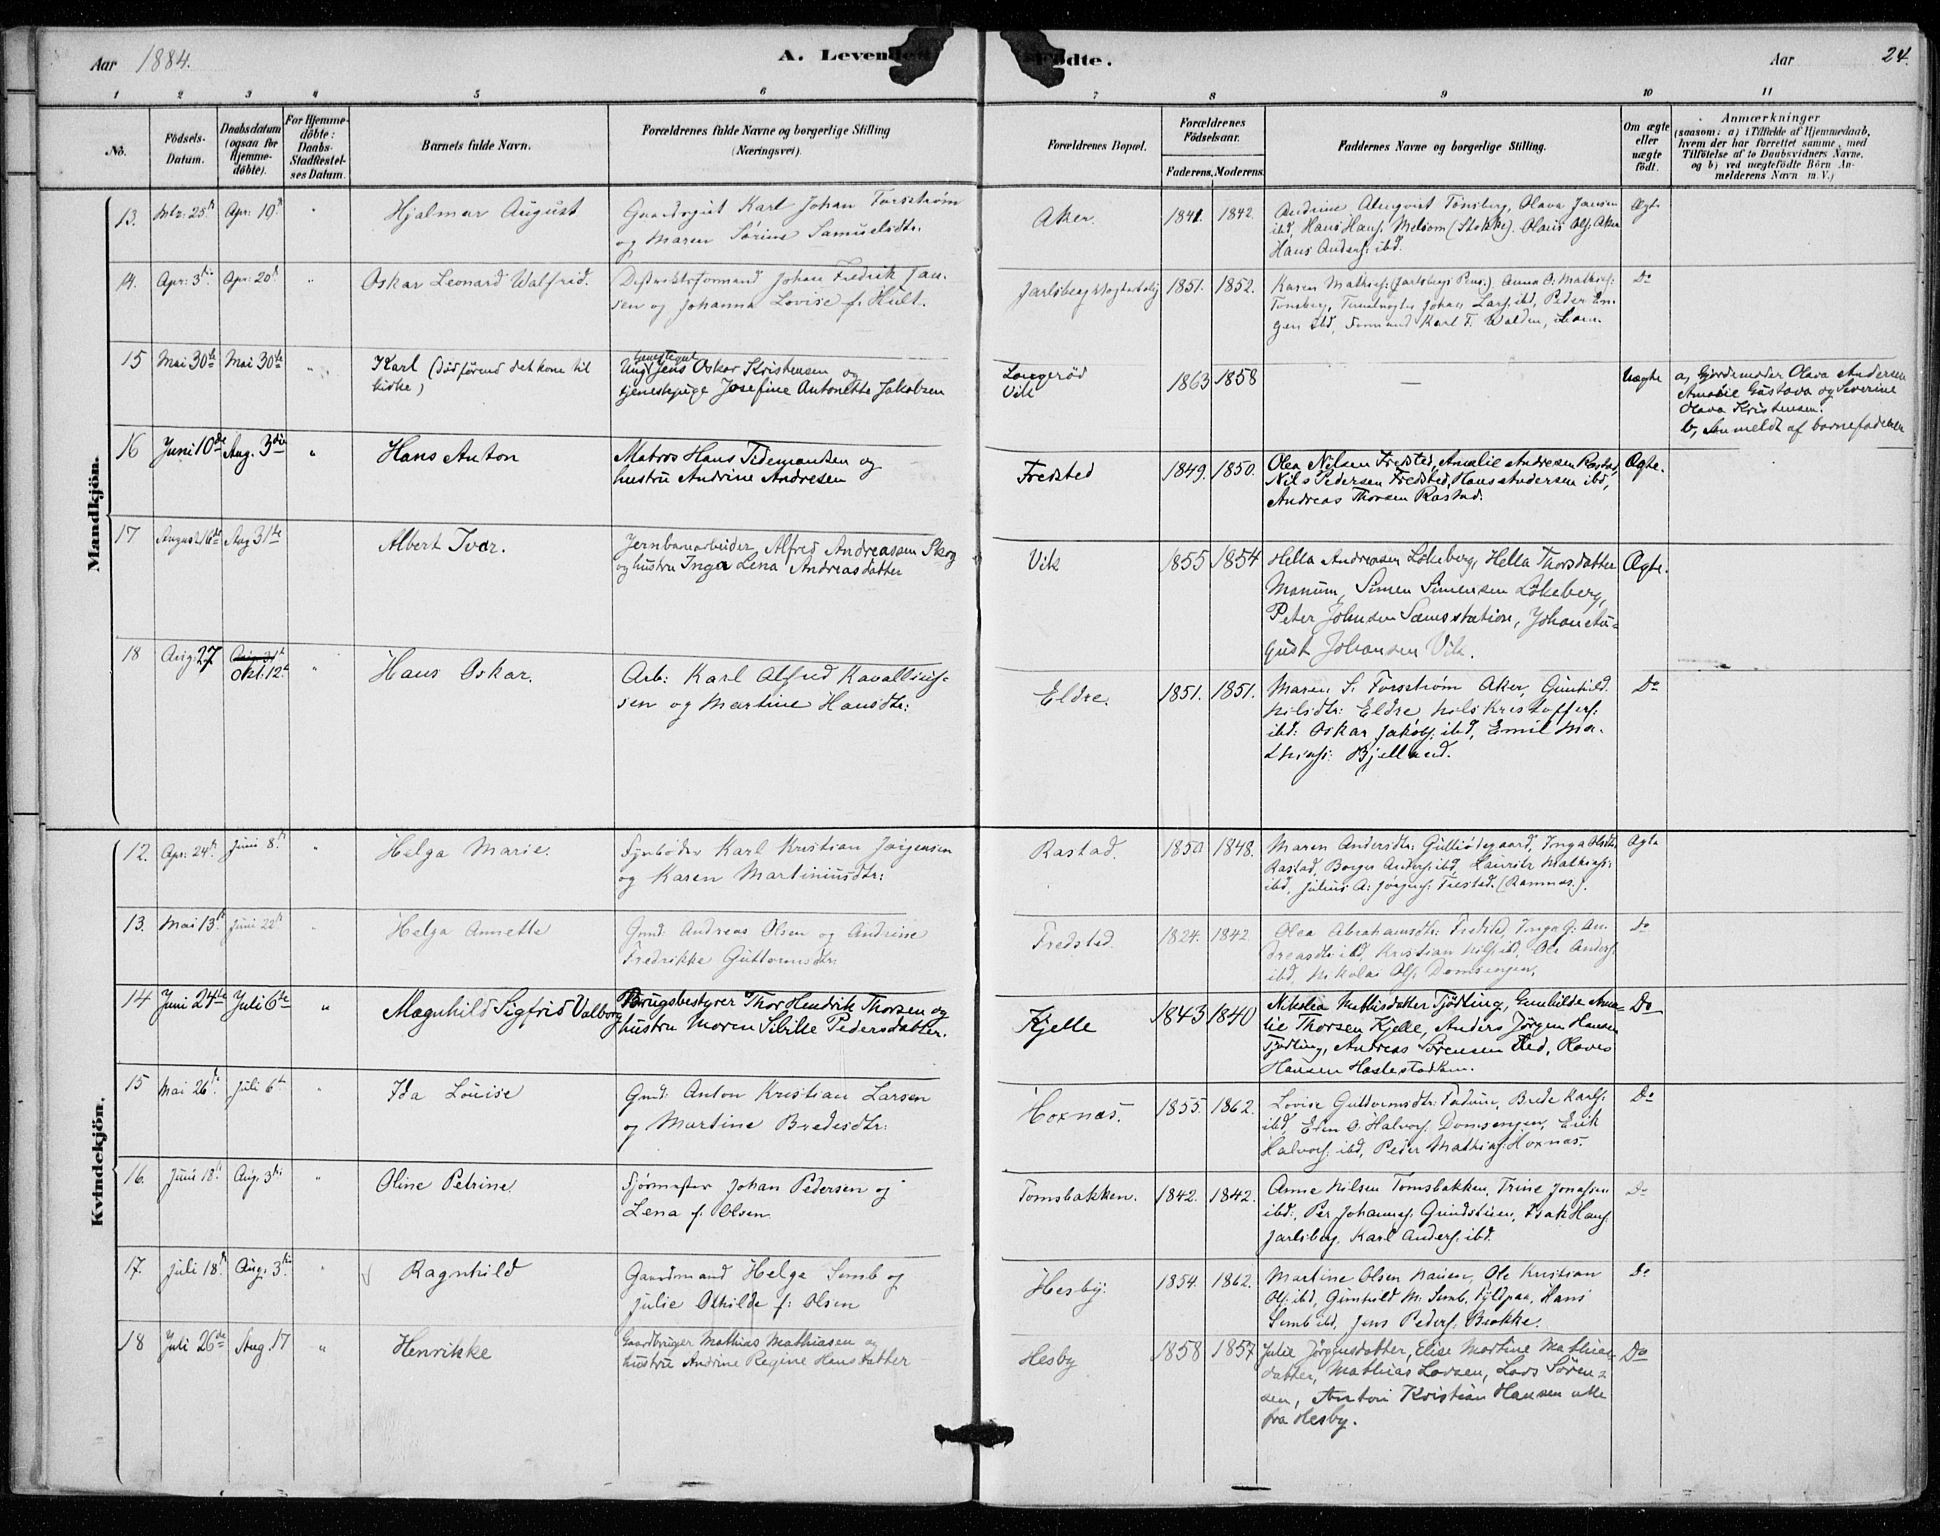 Aar 1884. A. Levende fødte. Aar 24.
1 2 3 4 5 6 7 8 9 10 11
No. Födsels-Datum. Daabsdatum (ogsaa for Hjemme-döbte). For Hjemme-döbte: Daabs-Stadfæstel-ses Datum. Barnets fulde Navn. Forældrenes fulde Navne og borgerlige Stilling (Næringsvei). Forældrenes Bopæl. Forældrenes Födselsaar. Faderens. Moderens. Faddernes Navne og borgerlige Stilling. Om ægte eller uægte födt. Anmærkninger (saasom: a) i Tilfælde af Hjemmedaab, hvem der har forrettet samme, med Tilföielse af to Daabsvidners Navne, og b) ved uægtefödte Börn An-melderens Navn m. V.)
Mandkjön.
13. Mrz: 25de Apr: 19de " Hjalmar August
Gaardsgut Karl Johan Forsstrøm
og Maren Sørine Samuelsdtr:
Aker. 1841. 1842.
Andrine Almqvist Tønsberg, Olava Jansen
ibd, Hans Hans: Melsom (Stokke). Olaus Ols: Aker
Hans Anders: ibd.
Ægte
14. Apr: 3die Apr: 20de " Oskar Leonard Walfrid.
Distriktsformand Johan Fredrik Jan-
sen og Johanna Lovise f: Hult.
1851. 1852.
Karen Mathis: (Jarlsbergs Præs:). Anna O. Mathies:
Tønsberg, Johan Lars: ibd, Peder En-
gen ibd, Formand Karl F. Walden,
Do
15 Mai 30te Mai 30te " Karl (død førend det kom til
kirke)
Ungk. Jens Oskar Kristensen og
tjenestepige Josefine Antonette Jakobsen
Vik 1863 1858 — Uægte
a, Gjordemoder Olava Andersen
Amalie Gustava og Severine
Olava Kristensen.
b, Anmeldt af barnefaderen
16 Juni 10de Aug. 3die " Hans Anton
Matros Hans Tidemansen og
hustru Andrine Andresen
Fredsted 1849. 1850.
Olea Nilsen Fredsted, Amalie Andresen Rastad,
Nils Pedersen Fredsted, Hans Andersen ibd,
Andreas Thorsen Rastad.
Ægte.
17 August 16de Aug 31te Albert Ivar.
Jernbanearbeider Alfred Andreassen Skog
og hustru Inga Lena Andreasdatter
Vik 1855 1854
Hella Andreasen Løkeberg, Hella Thorsdatter
Manum, Simen Simensen Løkeberg,
Peter Johnsen Sæmsstation, Johan Au-
gust Johansen Vik.
Ægte.
18 Aug: 27 Aug. 31te Okt: 12te " Hans Oskar.
Arb: Karl Alfred Kavallius-
sen og Martine Hansdtr:
Eldre. 1851. 1851.
Maren S. Forsstrøm Aker, Gunhild
Nilsdtr: Eldre Nils Kristoffers:
ibd: Oskar Jakobs: ibd, Emil Ma-
thias: Bjelland.
Do
Kvindekjön.
12. Apr: 24de Juni 8de " Helga Marie.
Fyrbøder Karl Kristian Jørgensen
og Karen Martiniusdtr:
Rastad. 1850 1848.
Maren Andersdtr: Gulliødegaard, Inga Olsdtr:
Rastad, Borger Anders: ibd, Laurits Mathias:
ibd, Julius A: Jørgens: Frestad. (Ramnæs.).
Ægte
13. Mai 13de Juni 22de " Helga Annette
Gmd: Andreas Olsen og Andrine
Fredrikke Guttormsdtr:
Fredsted. 1824. 1842
Olea Abrahamsdtr: Fredsted, Inga G. An-
dreasdtr ibd, Kristian Nils: ibd, Ole Anders:
ibd, Nikolai Ols: Domsengen.
Do
14 Juni 24de Juli 6te " Magnhild Sigfrid Valborg
Brugsbestyrer Thor Hendrik Thorsen og
hustru Maren Sibille Pedersdatter.
Kjelle 1843 1840
Nikolea Mathisdatter Tjødling, Gunhilde Ama-
lie Thorsen Kjelle, Anders Jørgen Hansen
Tjødling, Andreas Sørensen
Hansen
Do
15 Mai 26de Juli 6te " Ida Louise
Gmd: Anton Kristian Larsen
og Martine Bredesdtr:
Hoxnæs. 1855. 1862.
Lovise Guttormsdtr: Fadum, Brede Karls:
ibd, Halvors: Domsengen, Erik
Halvors: ibd, Peder Mathias: Hoxnæs.
Do
16. Juni 18de Aug. 3die " Oline Petrine.
Johan Pedersen og
Lena f: Olsen
Tomsbakken. 1842. 1842.
Anne Nilsen Tomsbakken, Trine Jonassen
ibd:, Per Johannes: Grindstuen, Isak Hans:
Jarlsberg. Karl Anders: ibd.
Do
17. Juli 18de Aug. 3die " Ragnhild
Gaardmand Helge Semb og
Julie Othilde f: Olsen
Hesby. 1854. 1862.
Martine Olsen Nauen, Ole Kristian
Ols: ibd, Gunhild M: Semb, Hans
Semb ibd, Jens Peders: Brække.
Do
18 Juli 26de Aug. 17 " Henrikke
Gaardbruger Mathias Mathiasen og
hustru Andrine Regine Hansdatter
Hesby 1858 1857
Julie Jørgensdatter, Elise Martine Mathias-
datter, Mathias Larsen, Lars Søren-
sen, Anton Kristian Hansen alle
fra Hesby.
Do